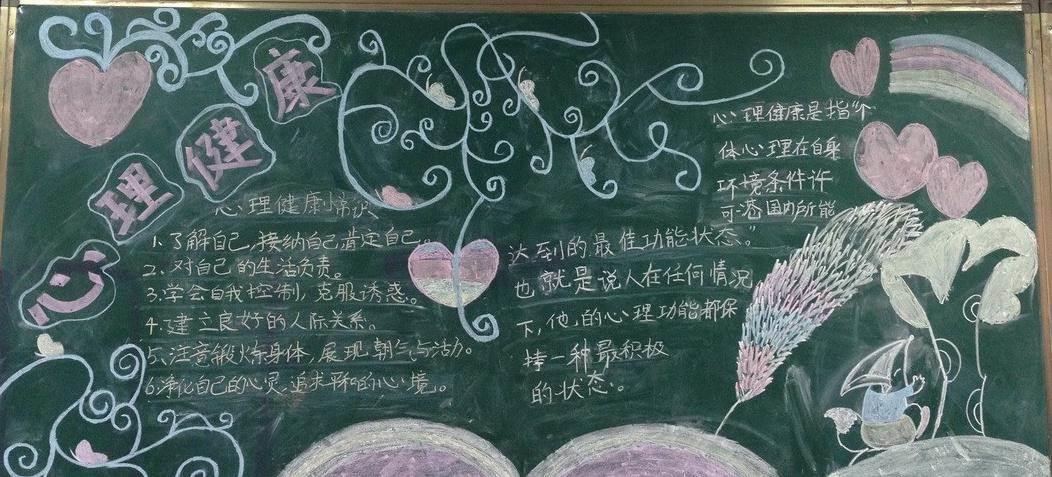 心理健康
心理健康常识
1.了解自己,接纳自己肯定自己。
2.对自己的生活负责。
3.学会自我控制,克服诱惑。
4.建立良好的人际关系。
5.注意锻炼身体,展现朝气与活力。
6.净化自己的心灵追求平和的心境。
心理健康是指“个
体心理在自身
环境条件许
可范围内所能
达到的最佳功能状态。”
也就是说人在任何情况
下,他的心理功能都保
持一种最积极
的状态。